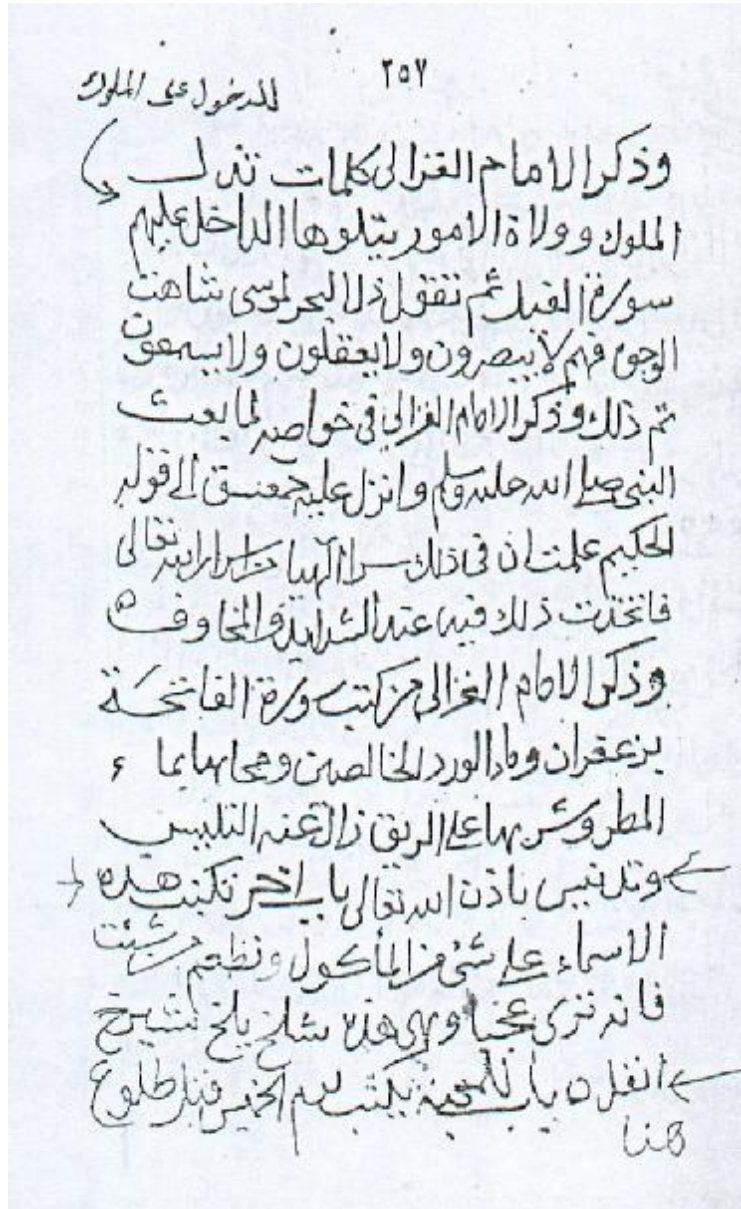 ٢٥٧
للدخول على الملوك
وذكر الامام الغزالى كلمات تذل
الملوك وولاة الامور يتلوها الداخل عليهم
سورة الفيل ثم تقول ذل البحر لموسى شاهت
الوجوه فهم لا يبصرون ولا يعقلون ولا يسمعون
تم ذلك وذكر الامام الغزالي في خواصه لما بعث
النبى صلى الله عليه وسلم وانزل عليه حمعسق الى قوله
الحكيم علمت ان فى ذلك سرا الهيا من اسرار الله تعالى
فاتخذت ذلك فيه عند الشدايد والمخاوف
وذكر الامام الغزالى من كتب سورة الفاتحة
بزعفران وماء الورد الخالصين ومحاها بماء
المطر وشربها على الريق زال عنه التلبيس
باذن الله تعالى باب اخر تكتب هذه
الاسماء على شئ من المأكول وتطعم من شئت
فانه ترى عجبا وهى هذه شلخ يلخ
باب للمحبة يكتب يوم الخميس قبل طلوع
هنا